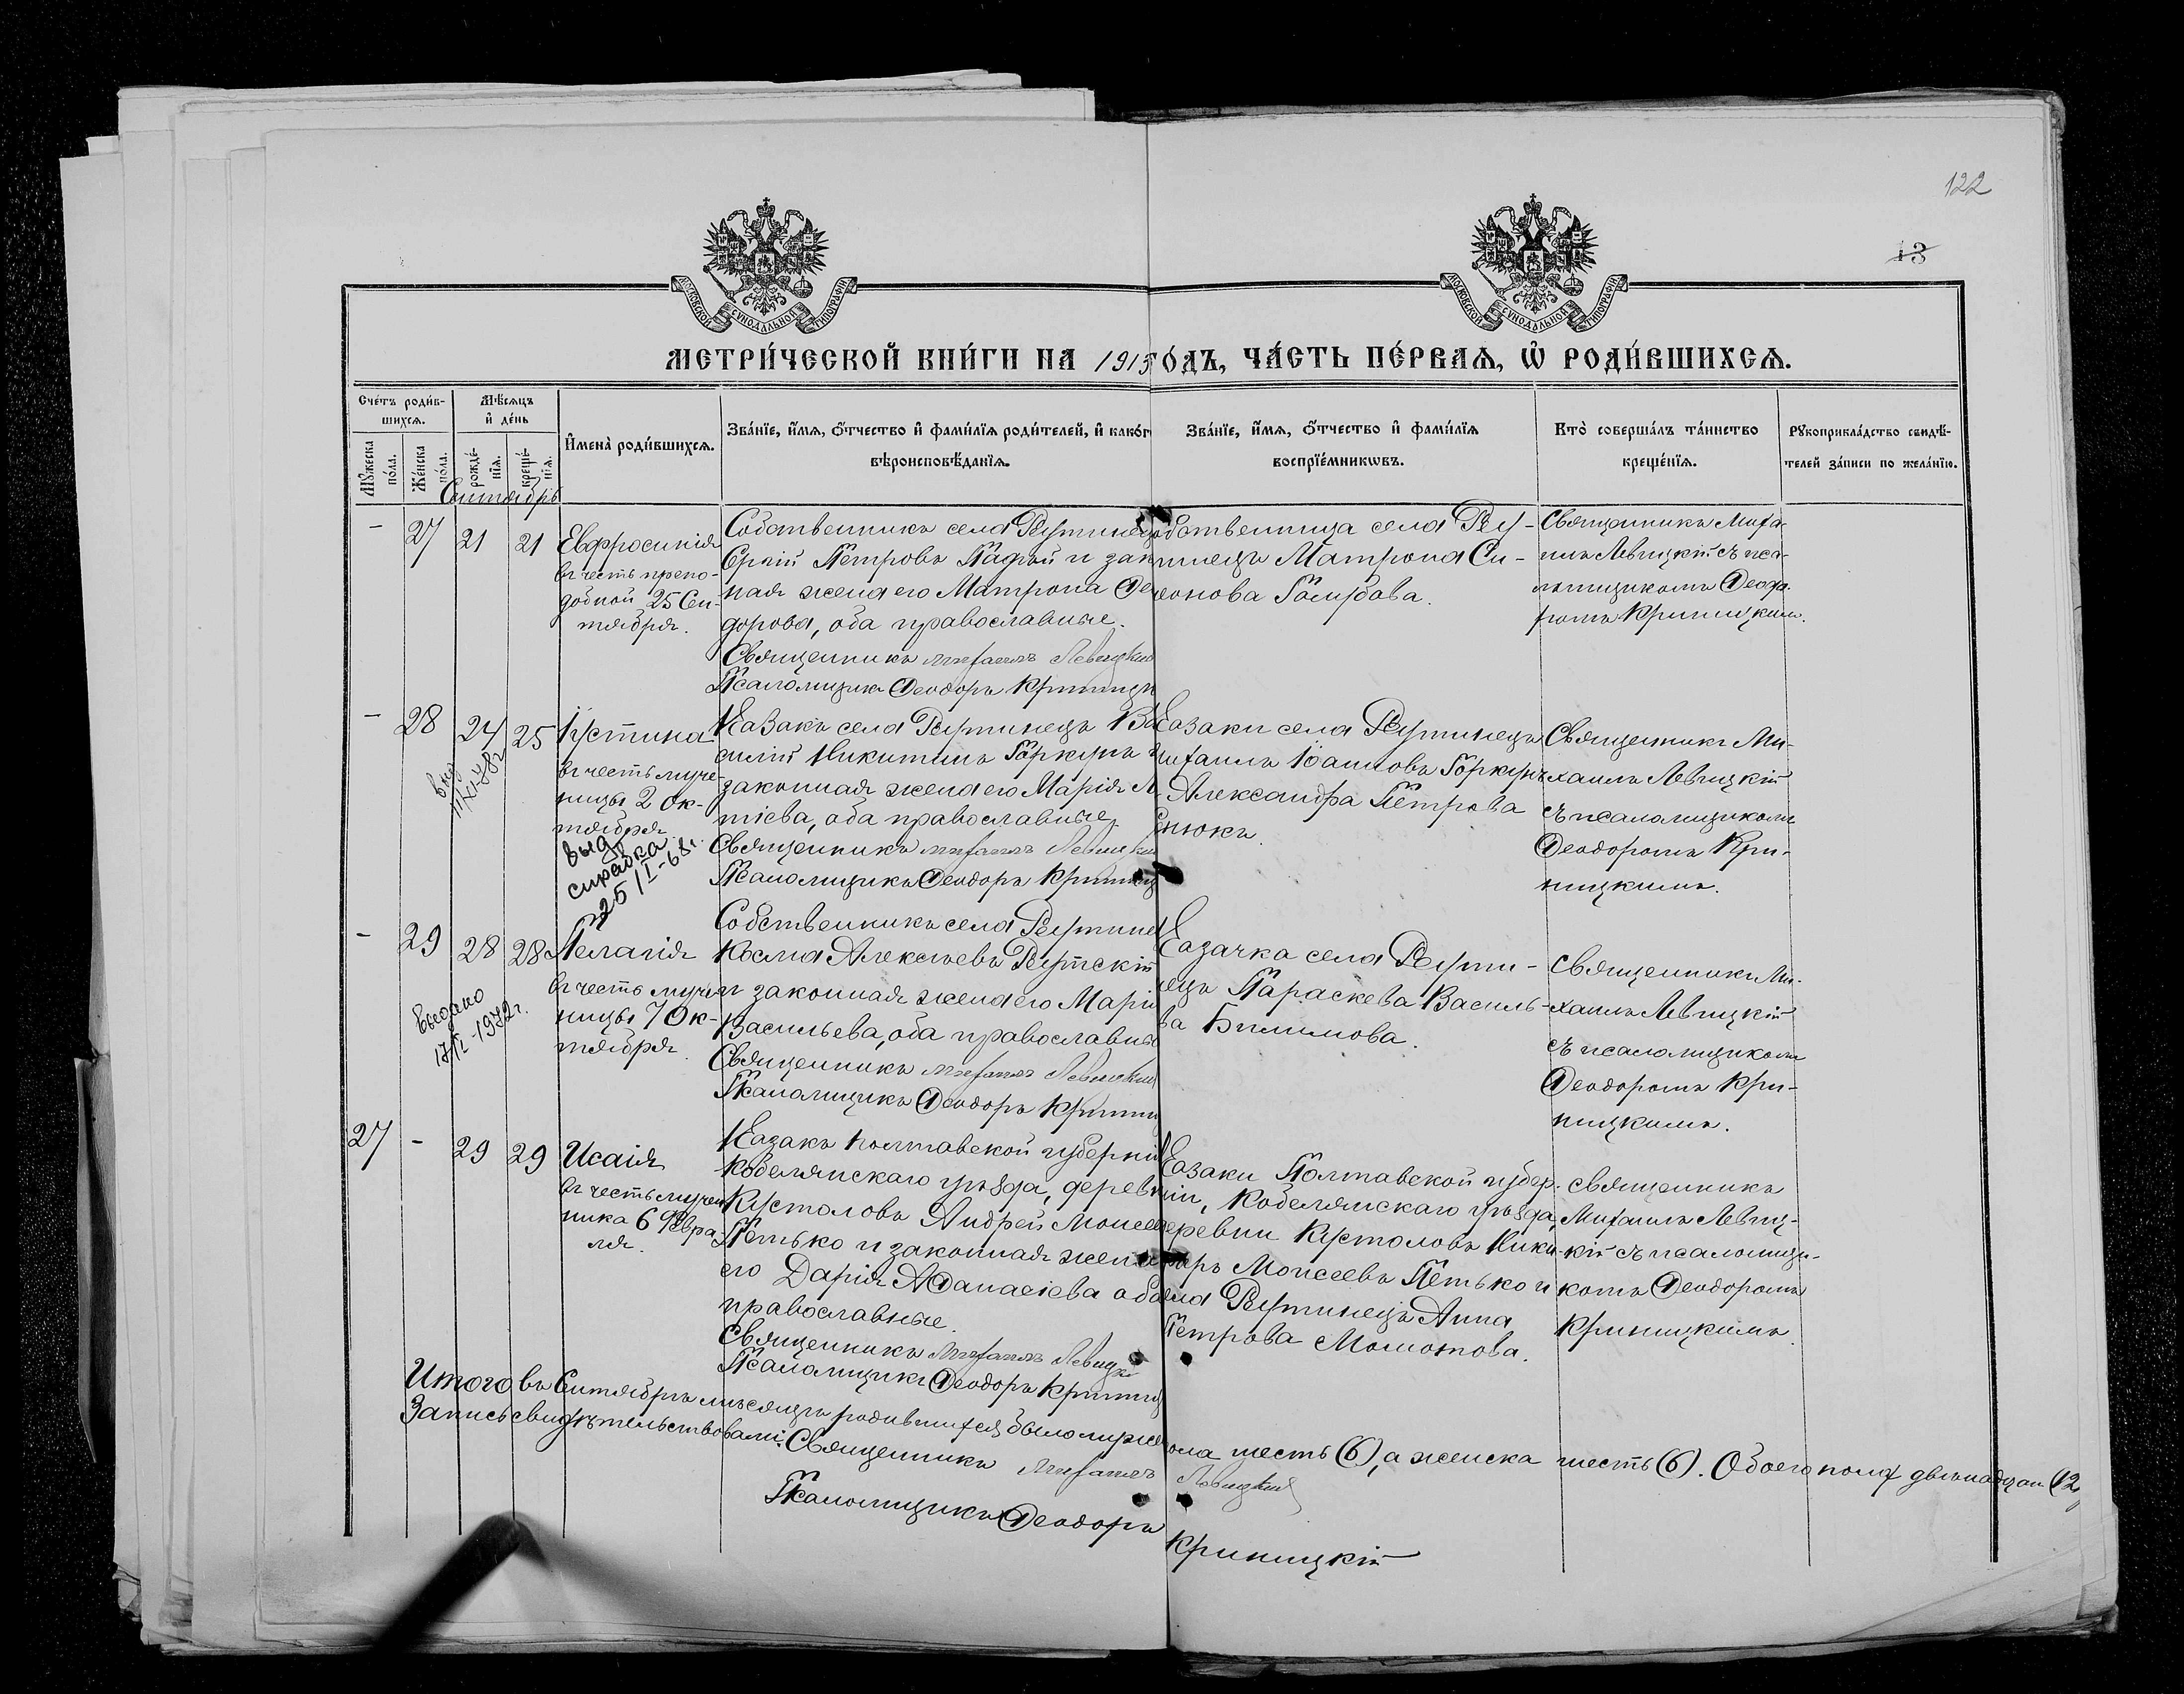 122
13
МОСКОВСКОЙ СѴНОДАЛЬНОЙ ТИПОГРАФІИ
МОСКОВСКОЙ СѴНОДАЛЬНОЙ ТИПОГРАФІИ
МЕТРИ́ЧЕСКОЙ КНИ́ГИ НА 1915 ГО́ДЪ, ЧА́СТЬ ПЕ́РВАѦ, Ѡ҆ РОДИ́ВШИХСѦ.
Сче́тъ роди́в-
шихсѧ.
Мꙋ́жеска по́ла.
Же́нска по́ла.
Мѣ́сѧцъ
и҆ де́нь
рожде́-
нїѧ.
креще́-
нїѧ.
И҆мена̀ роди́вшихсѧ.
Зва́нїе, и҆́мѧ, ѻ҆́тчество и҆ фами́лїѧ роди́телей, и҆ како́г
вѣроисповѣ́данїѧ.
Зва́нїе, и҆́мѧ, ѻ҆́тчество и҆ фами́лїѧ
воспрїе́мникѡвъ.
Кто̀ соверша́лъ та́инство
креще́нїѧ.
Рꙋкоприкла́дство свидѣ́-
телей за́писи по жела́нїю.
Сентябрь
- 27 21 21
Евфросинія
въ честь препо-
добной 25 Сен-
тября.
Собственникъ села Решетинец
Сергій Петровъ и зак
ная жена его Матрона Ѳе
дорова, оба православные.
Священникъ Михаилъ Левицкій
Псаломщикъ Ѳеодоръ Криницк
обственница села Ре-
Матрона Си-
монова Голубова.
Священникъ Миха-
илъ Левицкій съ пса-
ломщикомъ Ѳеодо-
ромъ Криницкимъ.
- 28 24 25
выд
11/XI-78г
Іустина
въ честь муче-
ницы 2 Ок-
тября
выд
справка
25/I-68г.
Казакъ села Ва
силій Никитинъ Горкунъ и
законная жена его Марія
тіева, оба православные.
Священникъ Михаилъ Левицкій
Псаломщикъ Ѳеодоръ Криниц
Казаки села
ихаилъ Іоанновъ Горкунъ
Александра Петрова
енюкъ.
Священникъ Ми-
хаилъ Левицкій
съ псаломщикомъ
Ѳеодоромъ Кри-
ницкимъ.
- 29 28 28
Выдано
17/I-1972г.
Пелагія
въ честь муче-
ницы 7 Ок-
тября.
Собственникъ села
Косма Алексѣевъ
и законная жена его Марі
Васильева, оба православны
Священникъ Михаилъ Левицкій
Псаломщикъ Ѳеодоръ Криниц
Казачка села
ецъ Параскева Василь-
ва Билимова.
Священникъ Ми-
хаилъ Левицкій
съ псаломщикомъ
Ѳеодоромъ Кри-
ницкимъ.
27 - 29 29
Исаія
въ честь муче
ника 6 Февра
ля.
Казакъ Полтавской губерні
Кобелякскаго уѣзда, деревн
Кустоловъ Андрей Моисеев
Петько и законная жена
его Дарія Аѳанасіева оба
православные.
Священникъ Михаилъ Левицкі
Псаломщикъ Ѳеодоръ Криниц
Казаки Полтавской губер-
ніи, Кобелякскаго уѣзда,
деревни Кустоловъ Ники-
форъ Моисеевъ Петько и
села Анна
Петрова Молотова.
Священникъ
Михаилъ Левиц-
кій съ псаломщи-
комъ Ѳеодоромъ
Криницкимъ.
Итого въ Сентябрѣ мѣсяцѣ родившихся было мужес ола шесть (6), а женска шесть (6). Обоего пола двѣнадцать (12)
Запись свидѣтельствовали: Священникъ Михаилъ Левицкій
Псаломщикъ Ѳеодоръ Криницкій